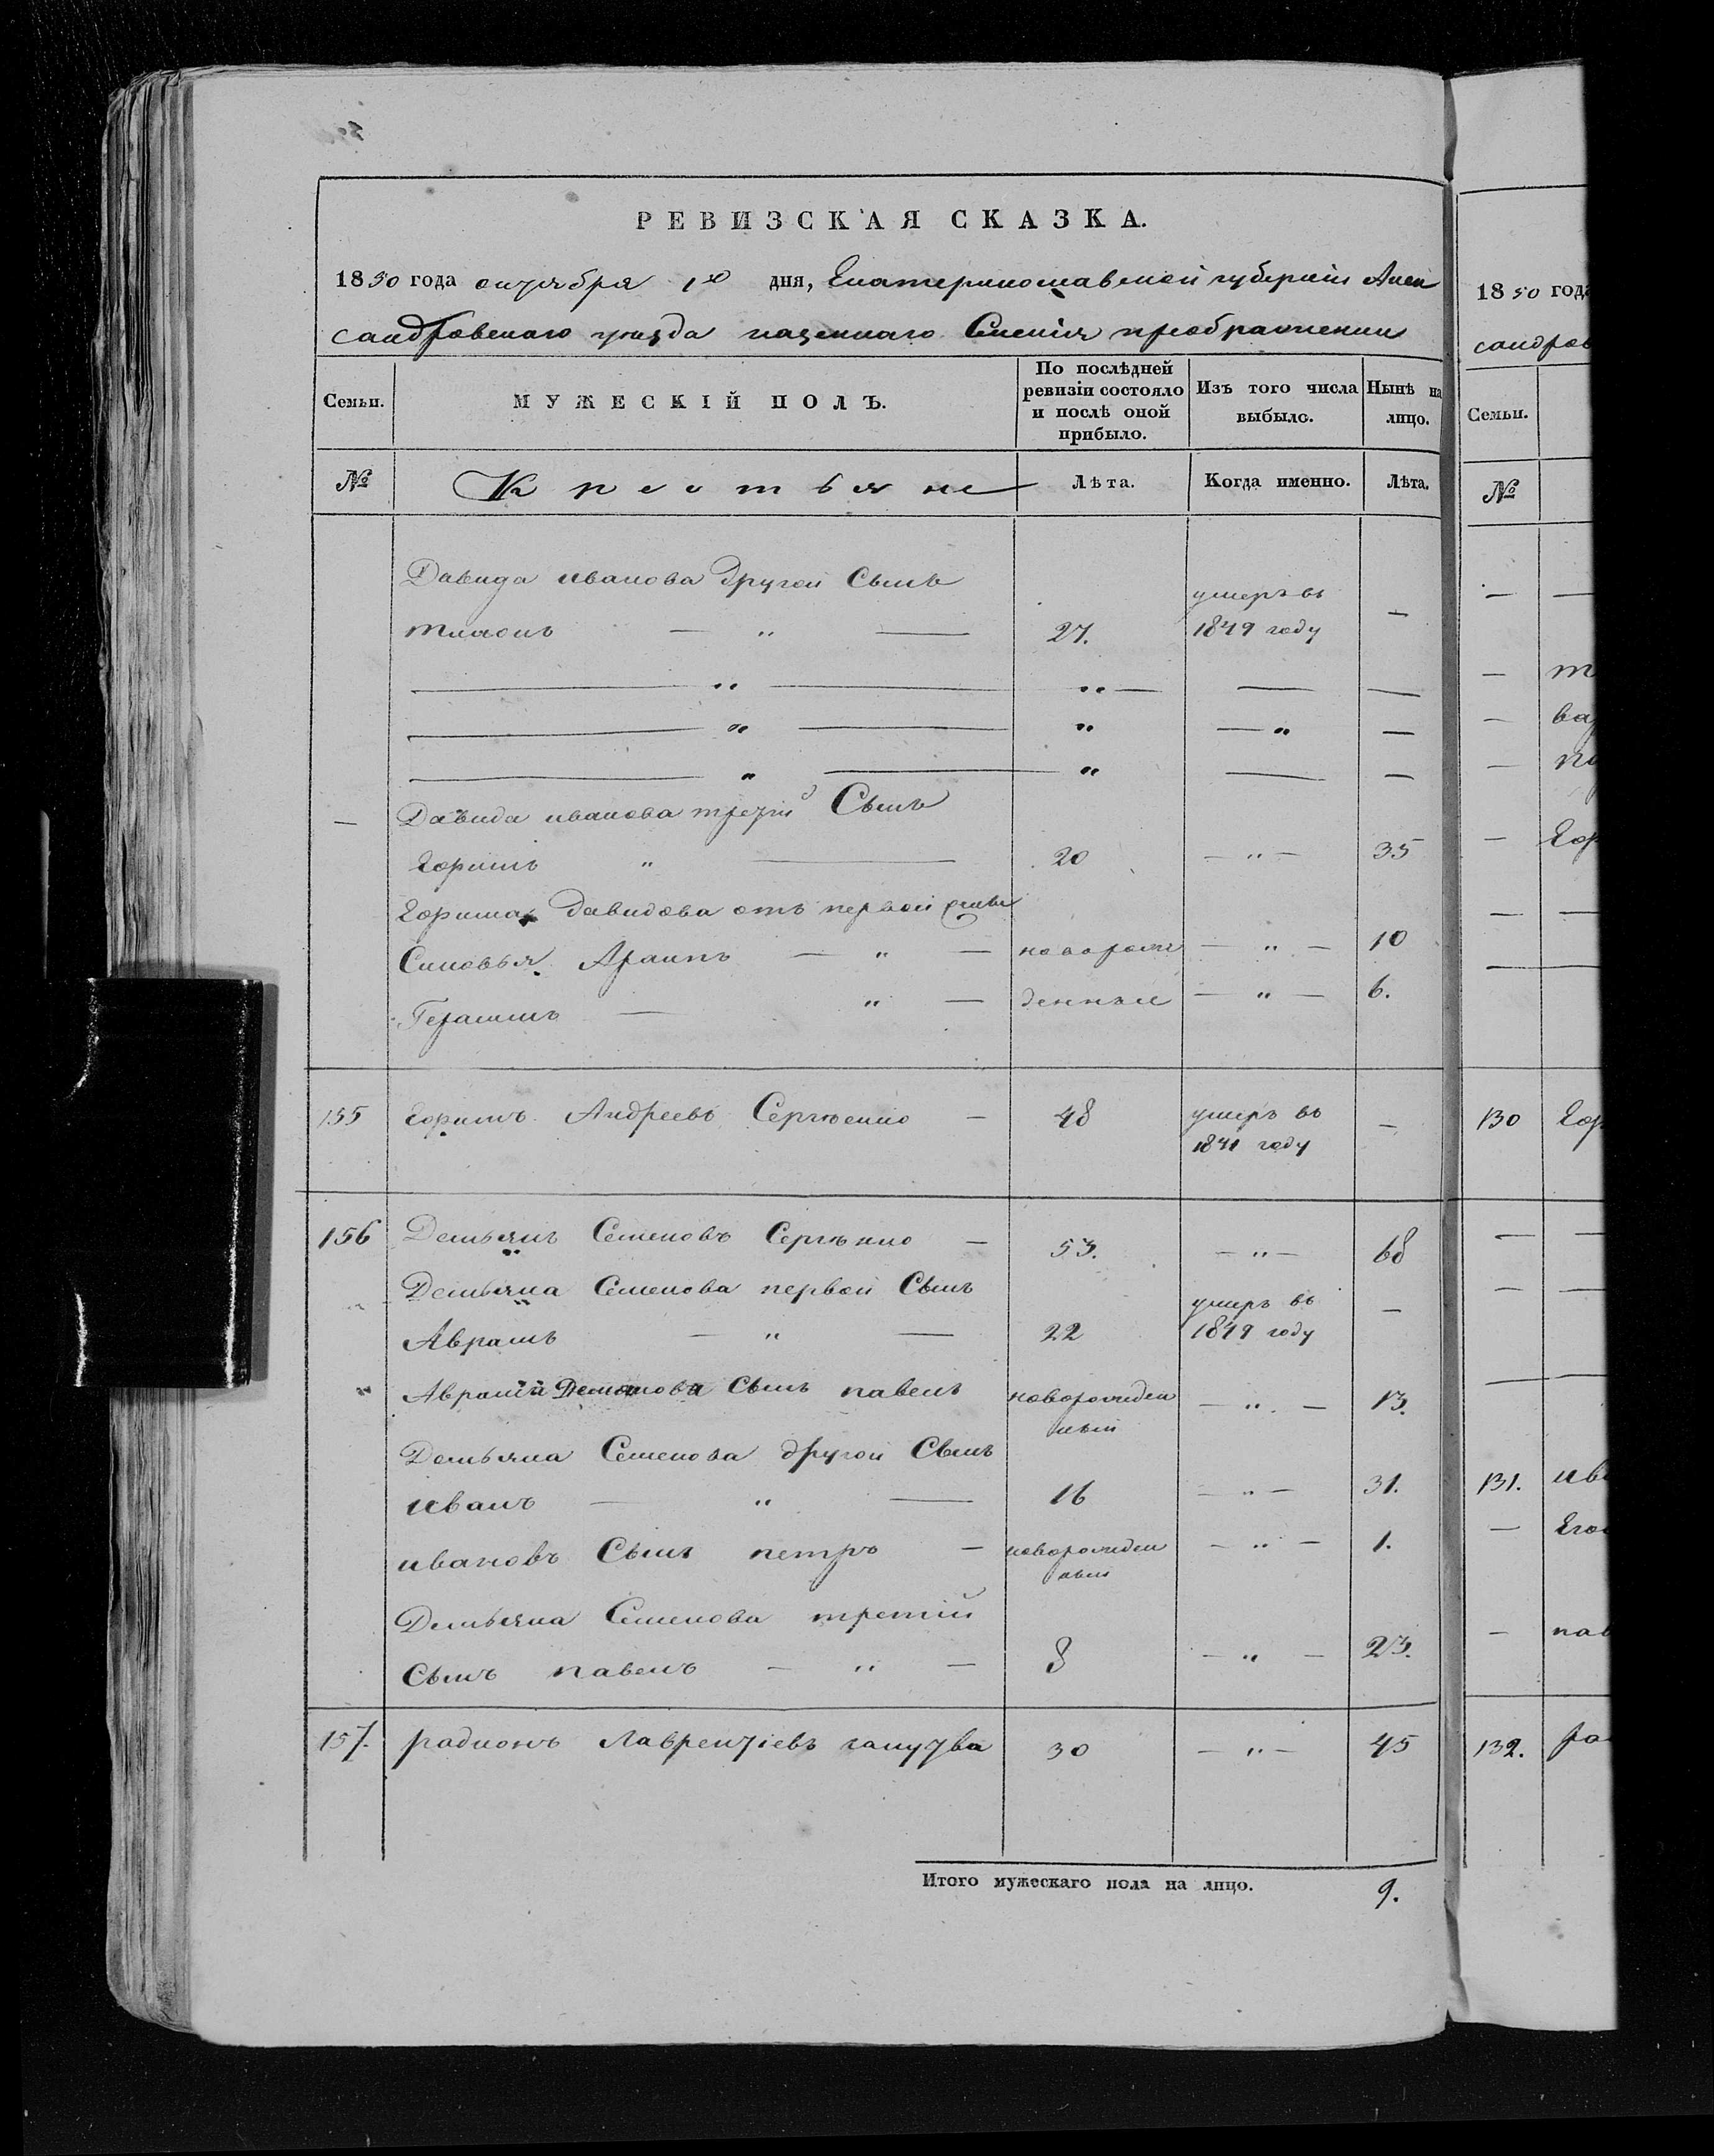 РЕВИЗСКАЯ СКАЗКА.
1850 года октября 1го дня, Екатеринославской губернии Алек
сандровскаго уезда казеннаго Селения преображенки
Семьи.
МУЖЕСКІЙ ПОЛЪ.
По послѣдней ревизіи состояло и послѣ оной прибыло.
Изъ того числа выбыло.
Нынѣ на лицо.
№
Крестьяне
Лѣта.
Когда именно.
Лѣта.
Давида иванова другой Сынъ
умеръ въ
— „ — 27. 1849 году —
— „ — „ — — —
— „ — „ — „ —
— „ — „ — —
— Давида иванова третий Сынъ
Ефимъ „ — 20 — „ — 35
Ефима Давидова отъ первой
Синовья Архипъ — „ —новорож — „ — 10
Герасимъ — „ — денные — „ — 6.
155 Ефимъ Андреевъ Сергѣенко — 48 умеръ въ —
1841 году
156 Демьянъ Семеновъ Сергѣнко — 53. — „ — 68
Демьяна Семенова первой Сынъ
умеръ въ
Аврамъ — „ — 22 1849 году —
„ Сынъ павелъ новорожден — „ — 13.
ный
Демьяна Семенова другой Сынъ
иванъ — „ — 16 — „ — 31.
ивановъ Сынъ петръ — новорожден — „ — 1.
ный
Демьяна Семенова третий
Сынъ павелъ — „ — 8 — „ — 23.
157. радионъ Лаврентіевъ 30 — „ — 45
Итого мужескаго пола на лицо. 9.
1850 года
сандров
Семьи.
№
—
— т
— ва
— по
— Еф
—
130 Еф
131. ива
— Его
— пав
132. ра